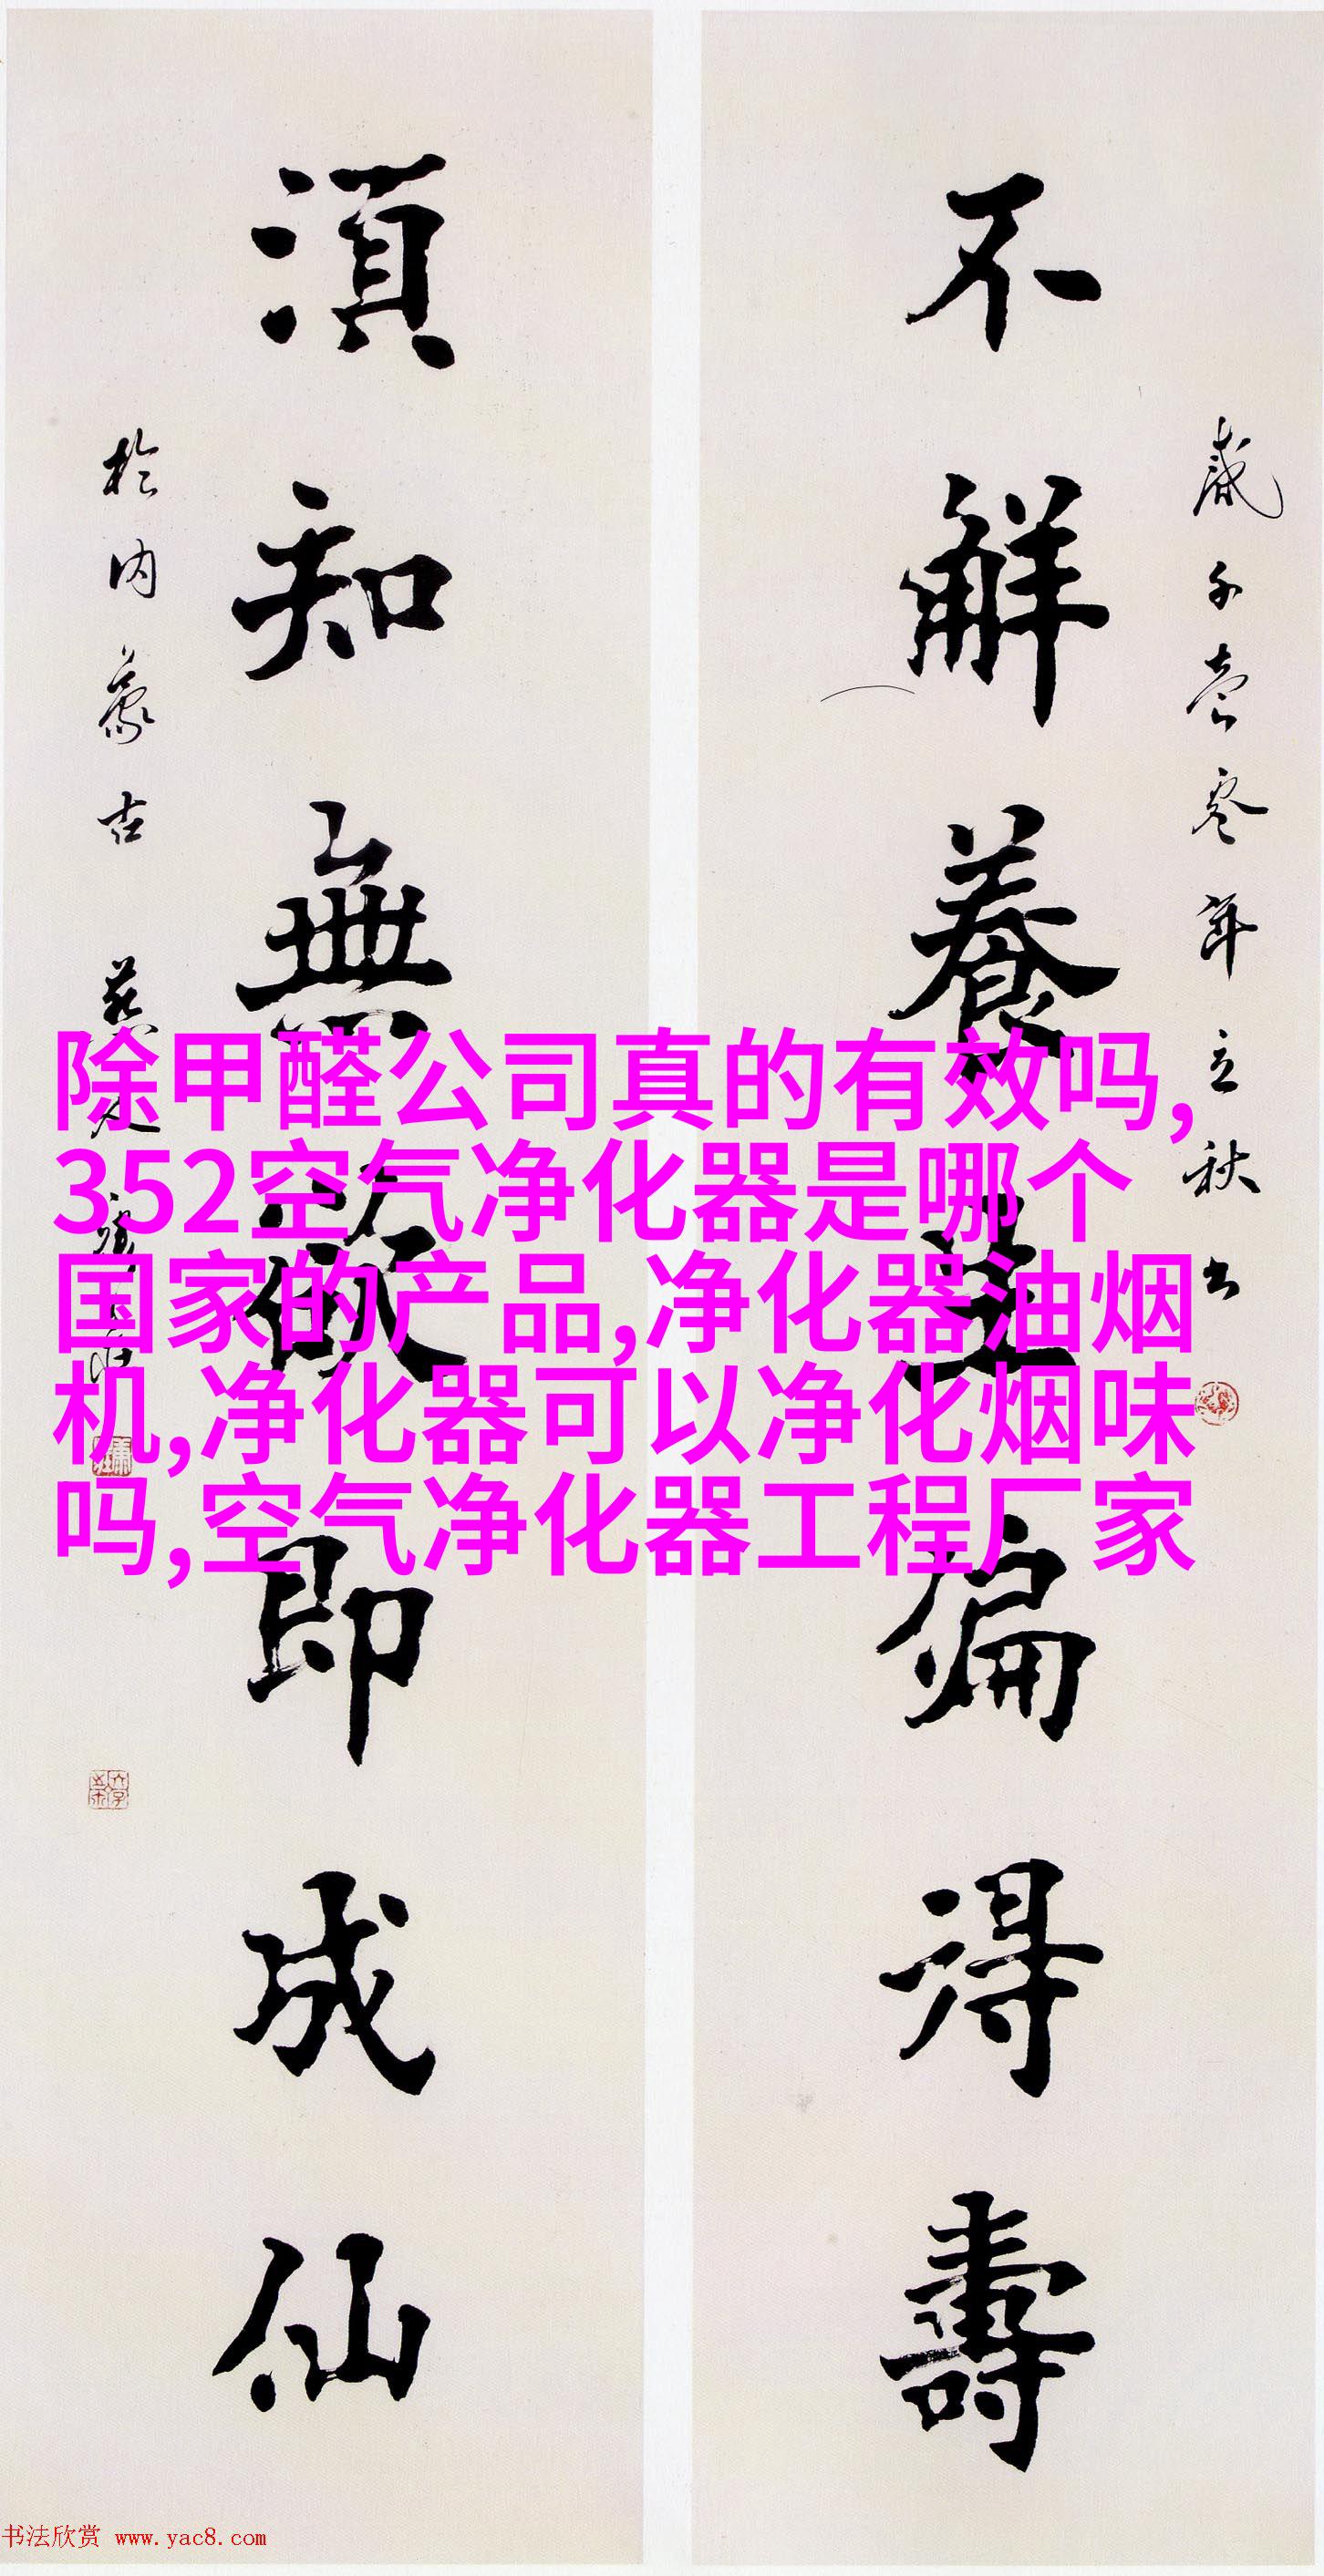 不解養生偏得壽
歲千壹零年立秋書
須知無欲即成仙
於内蒙古
除甲醛公司真的有效吗,
352空气净化器是哪个
国家的产品,净化器油烟
机,净化器可以净化烟味
吗,空气净化器工程厂家
书法欣赏 www.yac8.com